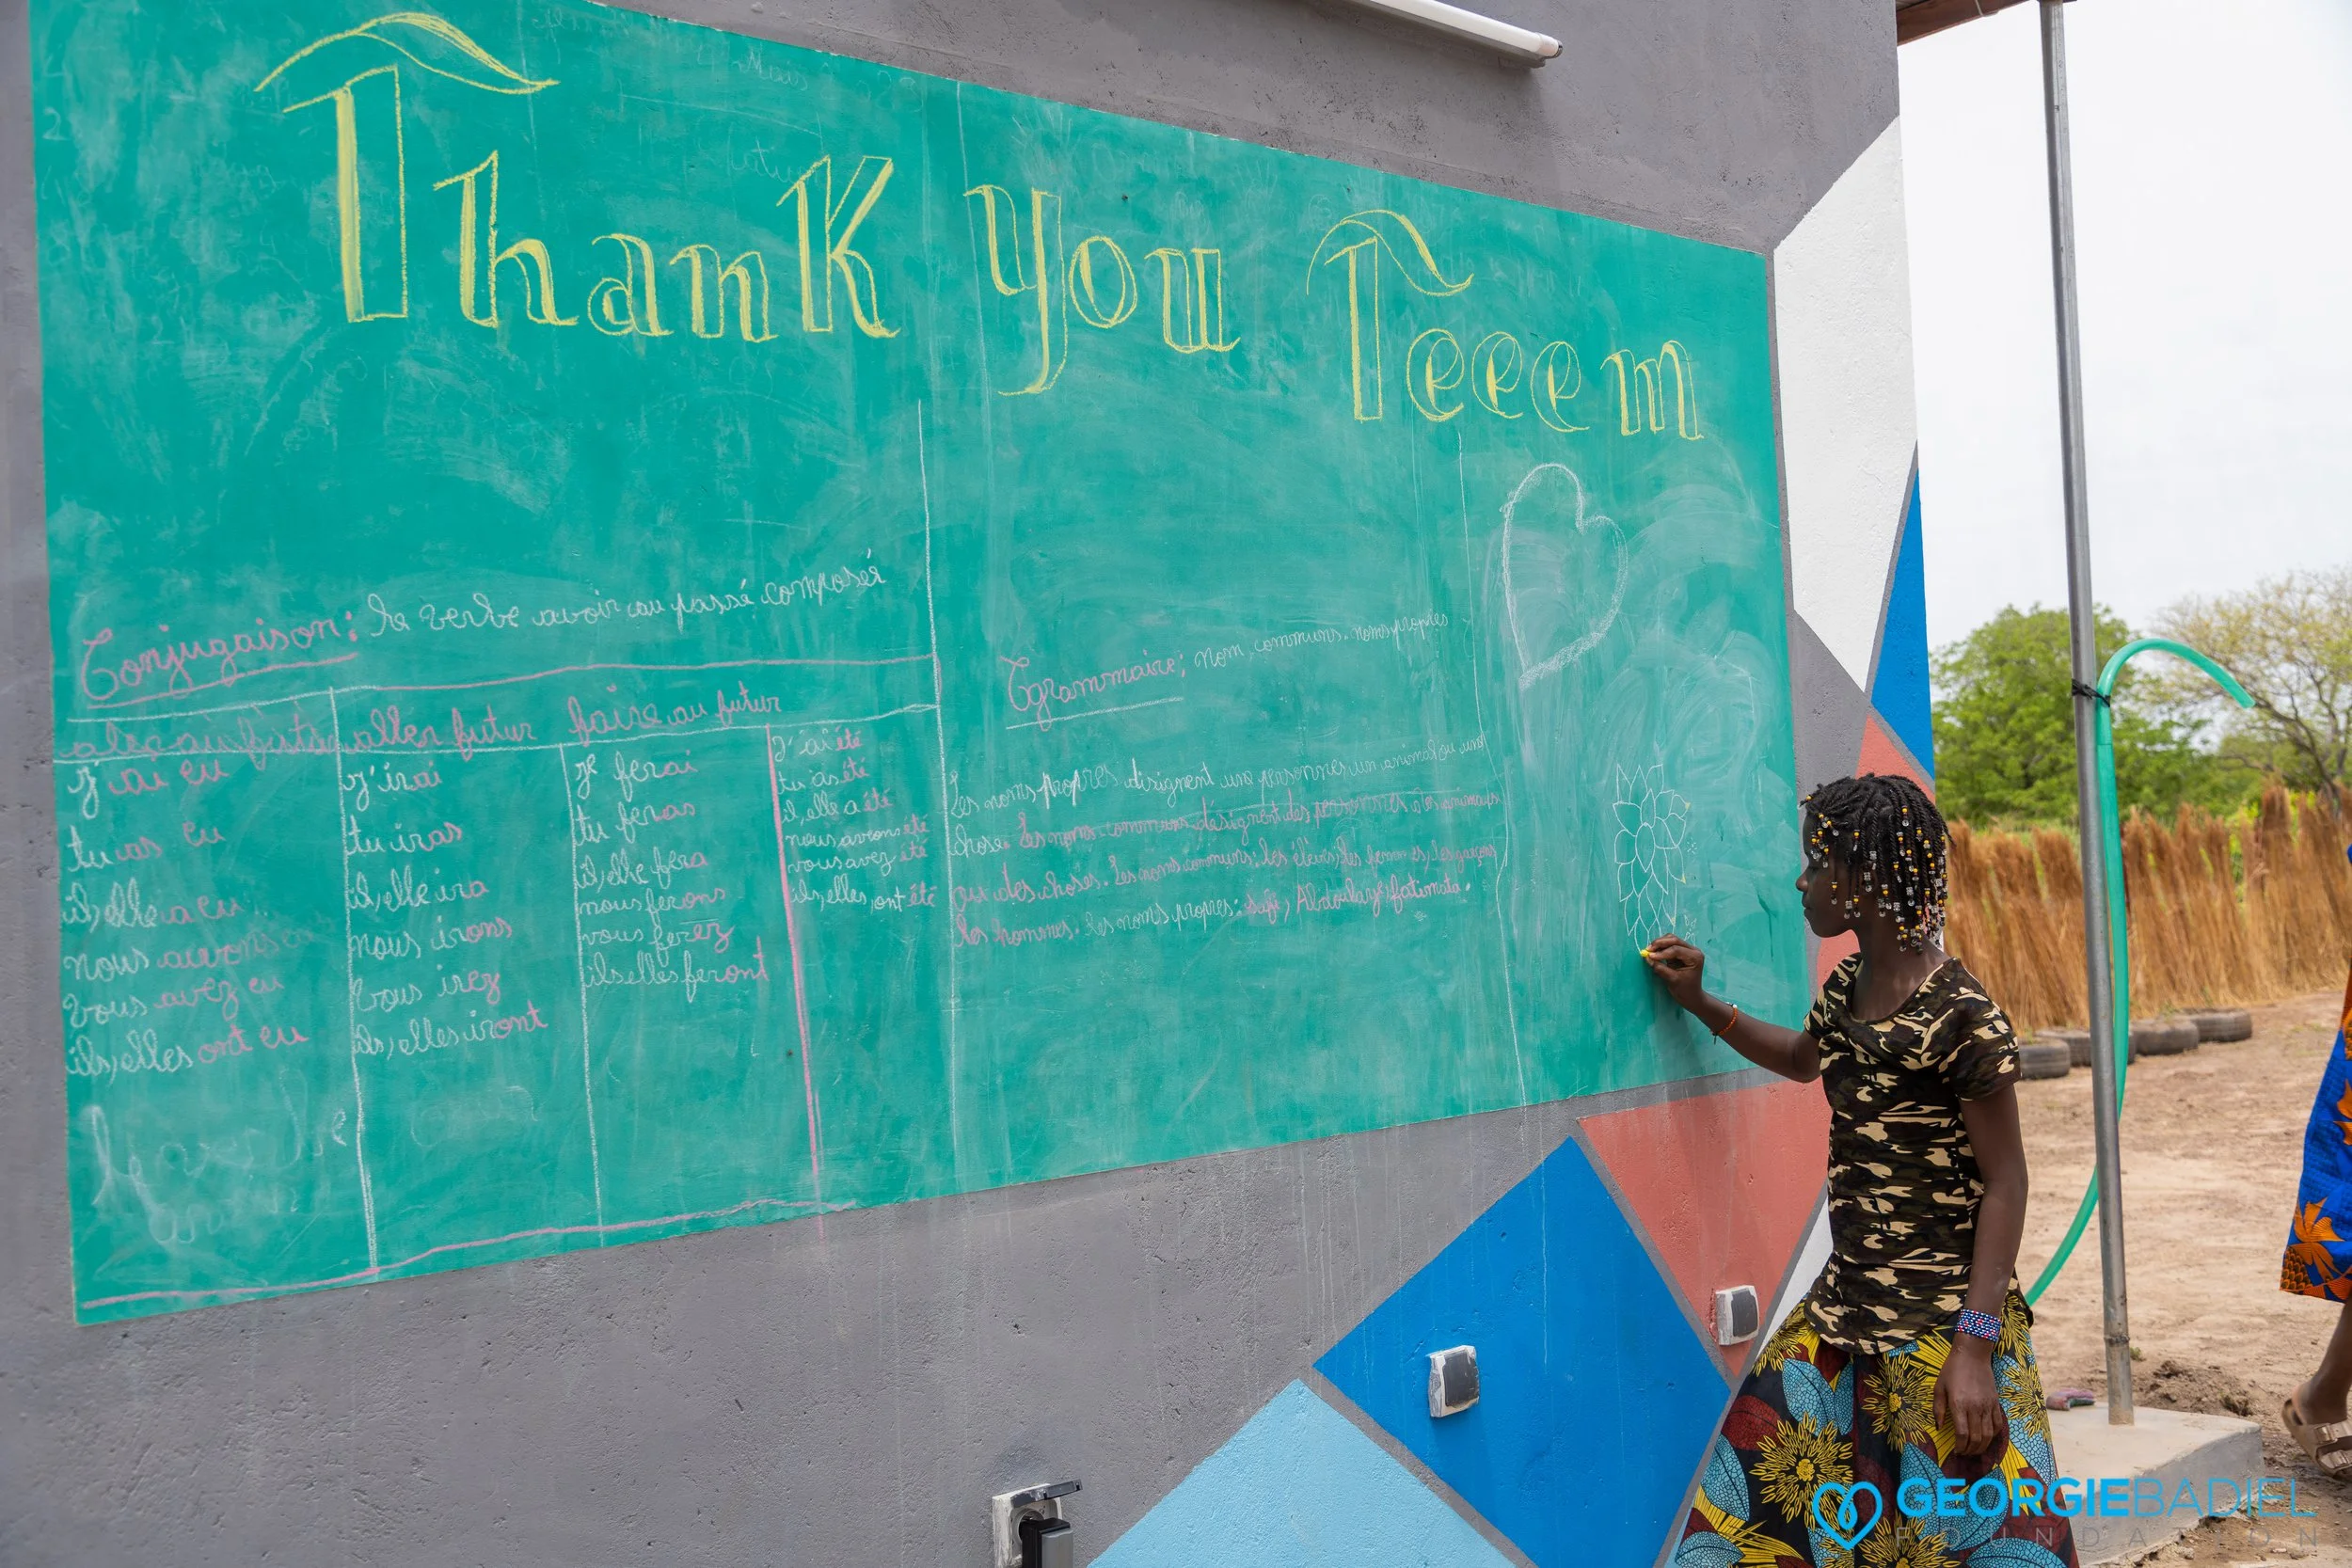 Thank you Teeem
Conjugaison: le verbe avoir au passé composér
aller futur
faire au futur
j'ai eu
tu as eu
il, elle a eu
nous avons eu
vous avez eu
ils, elles ont eu
j'irai
tu iras
il, elle ira
nous irons
vous irez
ils, elles iront
je ferai
tu feras
il, elle fera
nous ferons
vous ferez
ils elles feront
j'ai été
tu as été
il, elle a été
nous avons été
vous avez été
ils, elles, ont été
Grammaire: nom communs. noms propres
Les noms propres disignent une personnes un animal ou un
chose. Les noms communs désignent des personnes animaux
ou des choses. Les noms communs: les élèves, les femmes, les garçons
les hommes. Les noms propres: safi, Abdoulaye, fatimata.
GEORGIEBADIEL
FOUNDATION